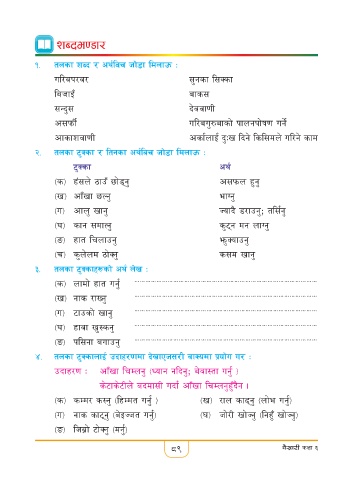 शब्दभण्डार
१. तलका शब्द र अर्थबिच जोडा मिलाऊ :
गरिबपरवर सुनका सिक्का
थिजाइँ बाकस
सन्दुस देववाणी
असर्फी गरिबगुरुबाको पालनपोषण गर्ने
आकाशवाणी अर्कालाई दुःख दिने किसिमले गरिने काम
२. तलका टुक्का र तिनका अर्थबिच जोडा मिलाऊ :
टुक्का अर्थ
(क) हंसले ठाउँ छोड्नु असफल हुनु
(ख) आँखा छल्नु भाग्नु
(ग) आलु खानु ज्यादै डराउनु; तर्सिनु
(घ) कान समात्नु कुट्न मन लाग्नु
(ङ) हात चिलाउनु झुक्याउनु
(च) कुलेलम ठोक्नु कसम खानु
३. तलका टुक्काहरूको अर्थ लेख :
(क) लामो हात गर्नु
(ख) नाक राख्नु
(ग) टाउको खानु
(घ) हावा खुस्कनु
(ङ) पसिना बगाउनु
४. तलका टुक्कालाई उदाहरणमा देखाएजसरी वाक्यमा प्रयोग गर :
उदाहरण : आँखा चिम्लनु (ध्यान नदिनु; बेवास्ता गर्नु )
केटाकेटीले बदमासी गर्दा आँखा चिम्लनुहुँदैन ।
(क) कम्मर कस्नु (हिम्मत गर्नु ) (ख) राल काढ्नु (लोभ गर्नु)
(ग) नाक काट्नु (बेइज्जत गर्नु) (घ) जोरी खोज्नु (निहुँ खोज्नु)
(ङ) जिब्रो टोक्नु (मर्नु)
८९ कक्षा ६